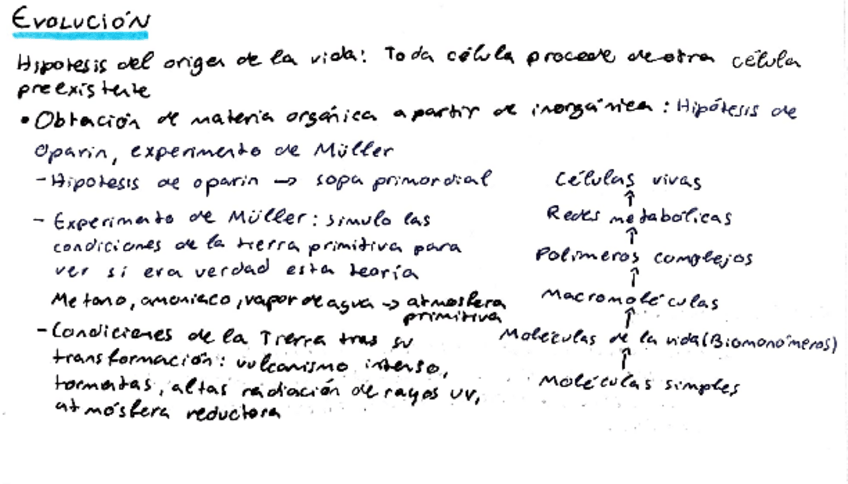 EVOLUCIÓN
Hipotesis del origen de la vida: Toda célula procede de otra célula
preexistente
• Obtación de materia orgánica a partir de inorgánica: Hipótesis de
Oparin, experimento de Müller
- Hipotesis de oparin → sopa primordial
- Experimento de Müller: simulo las
condiciones de la tierra primitiva para
ver si era verdad esta teoría
Metano, amoniaco, vapor de agua → atmosfera
primitiva
- Condiciones de la Tierra tras su
transformación: vulcanismo intenso,
tormentas, altas radiación de rayos UV,
atmósfera reductora
Células vivas
↑
Redes metabólicas
↑
Polimeros complejos
↑
Macromoléculas
↑
Moléculas de la vida (Biomonómeros)
↑
Moléculas simples